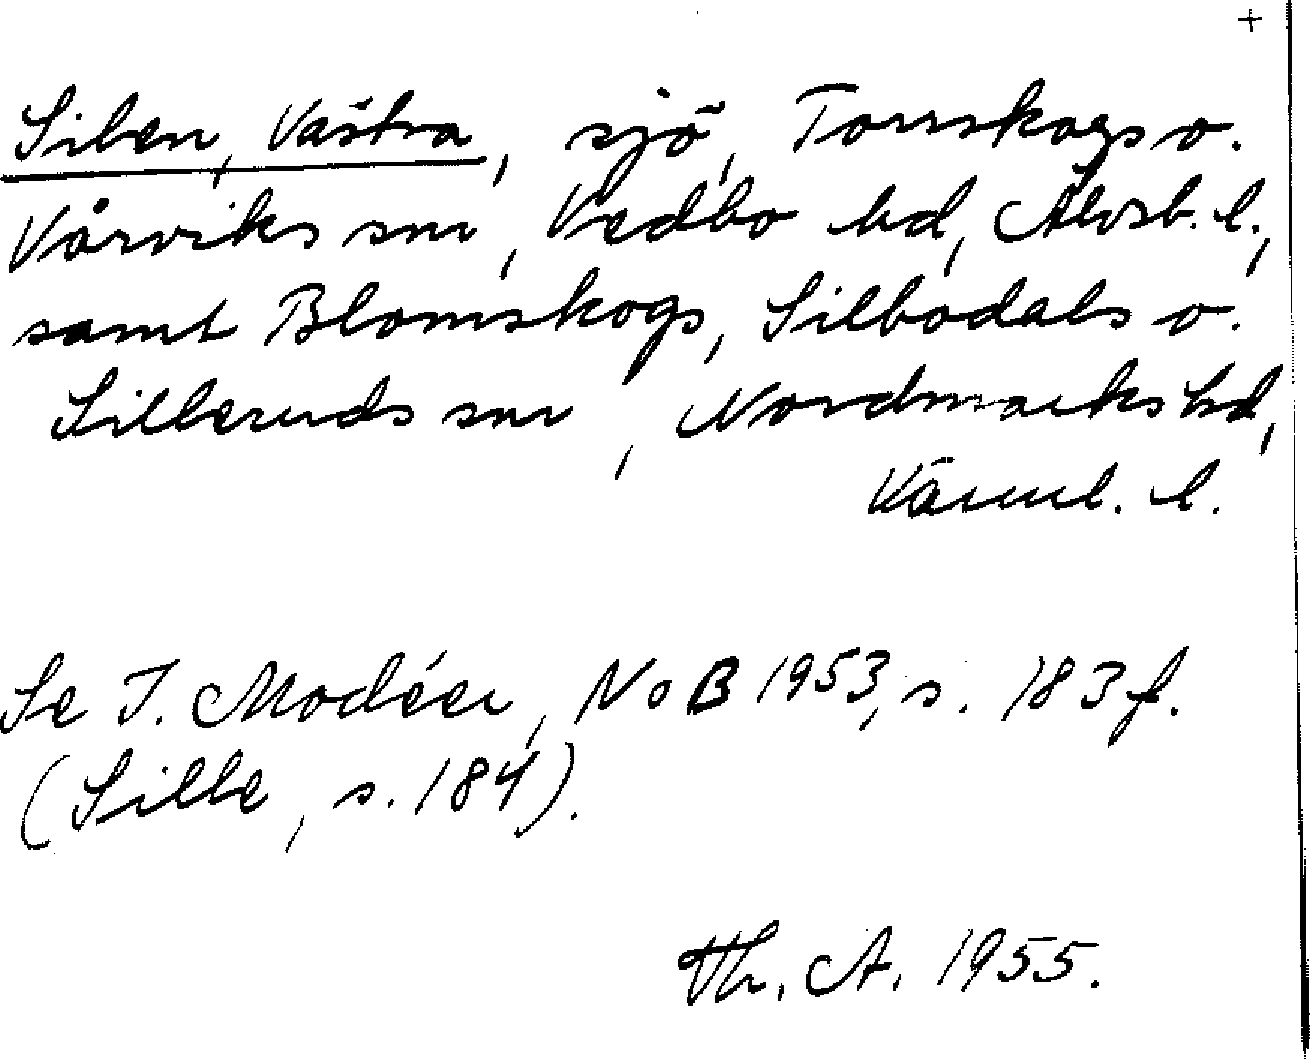 +
Silen, Västra, sjö, Torrskogs o.
Vårviks snr, Vedbo hd, Älvsb. l.,
samt Blomskogs, Silbodals o.
Silleruds snr, Nordmarks hd,
Värml. l.
Se I. Modéer, NoB 1953, s. 183 f.
(Sille, s. 184).
Th. A. 1955.